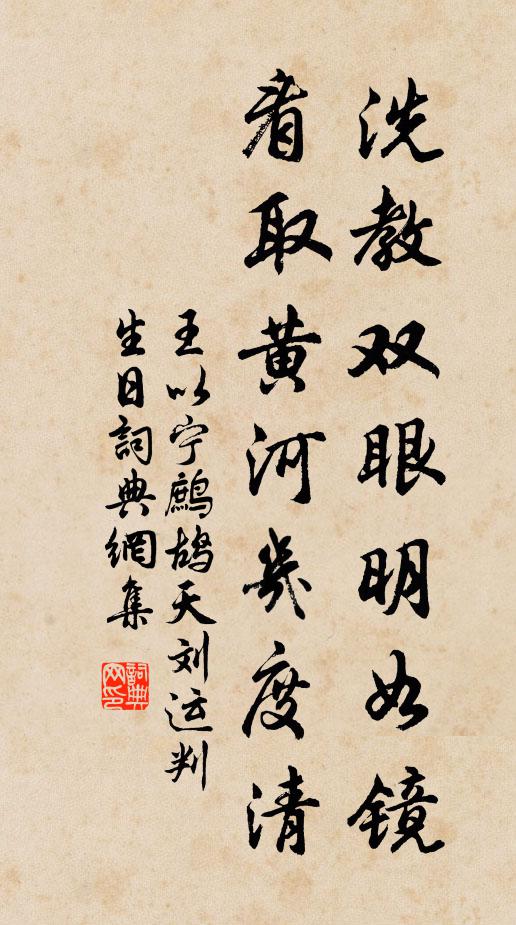 洗教双眼明如镜
看取黄河几度清
王以宁鹧鸪天刘运判
生日詞典網集
詞典网印